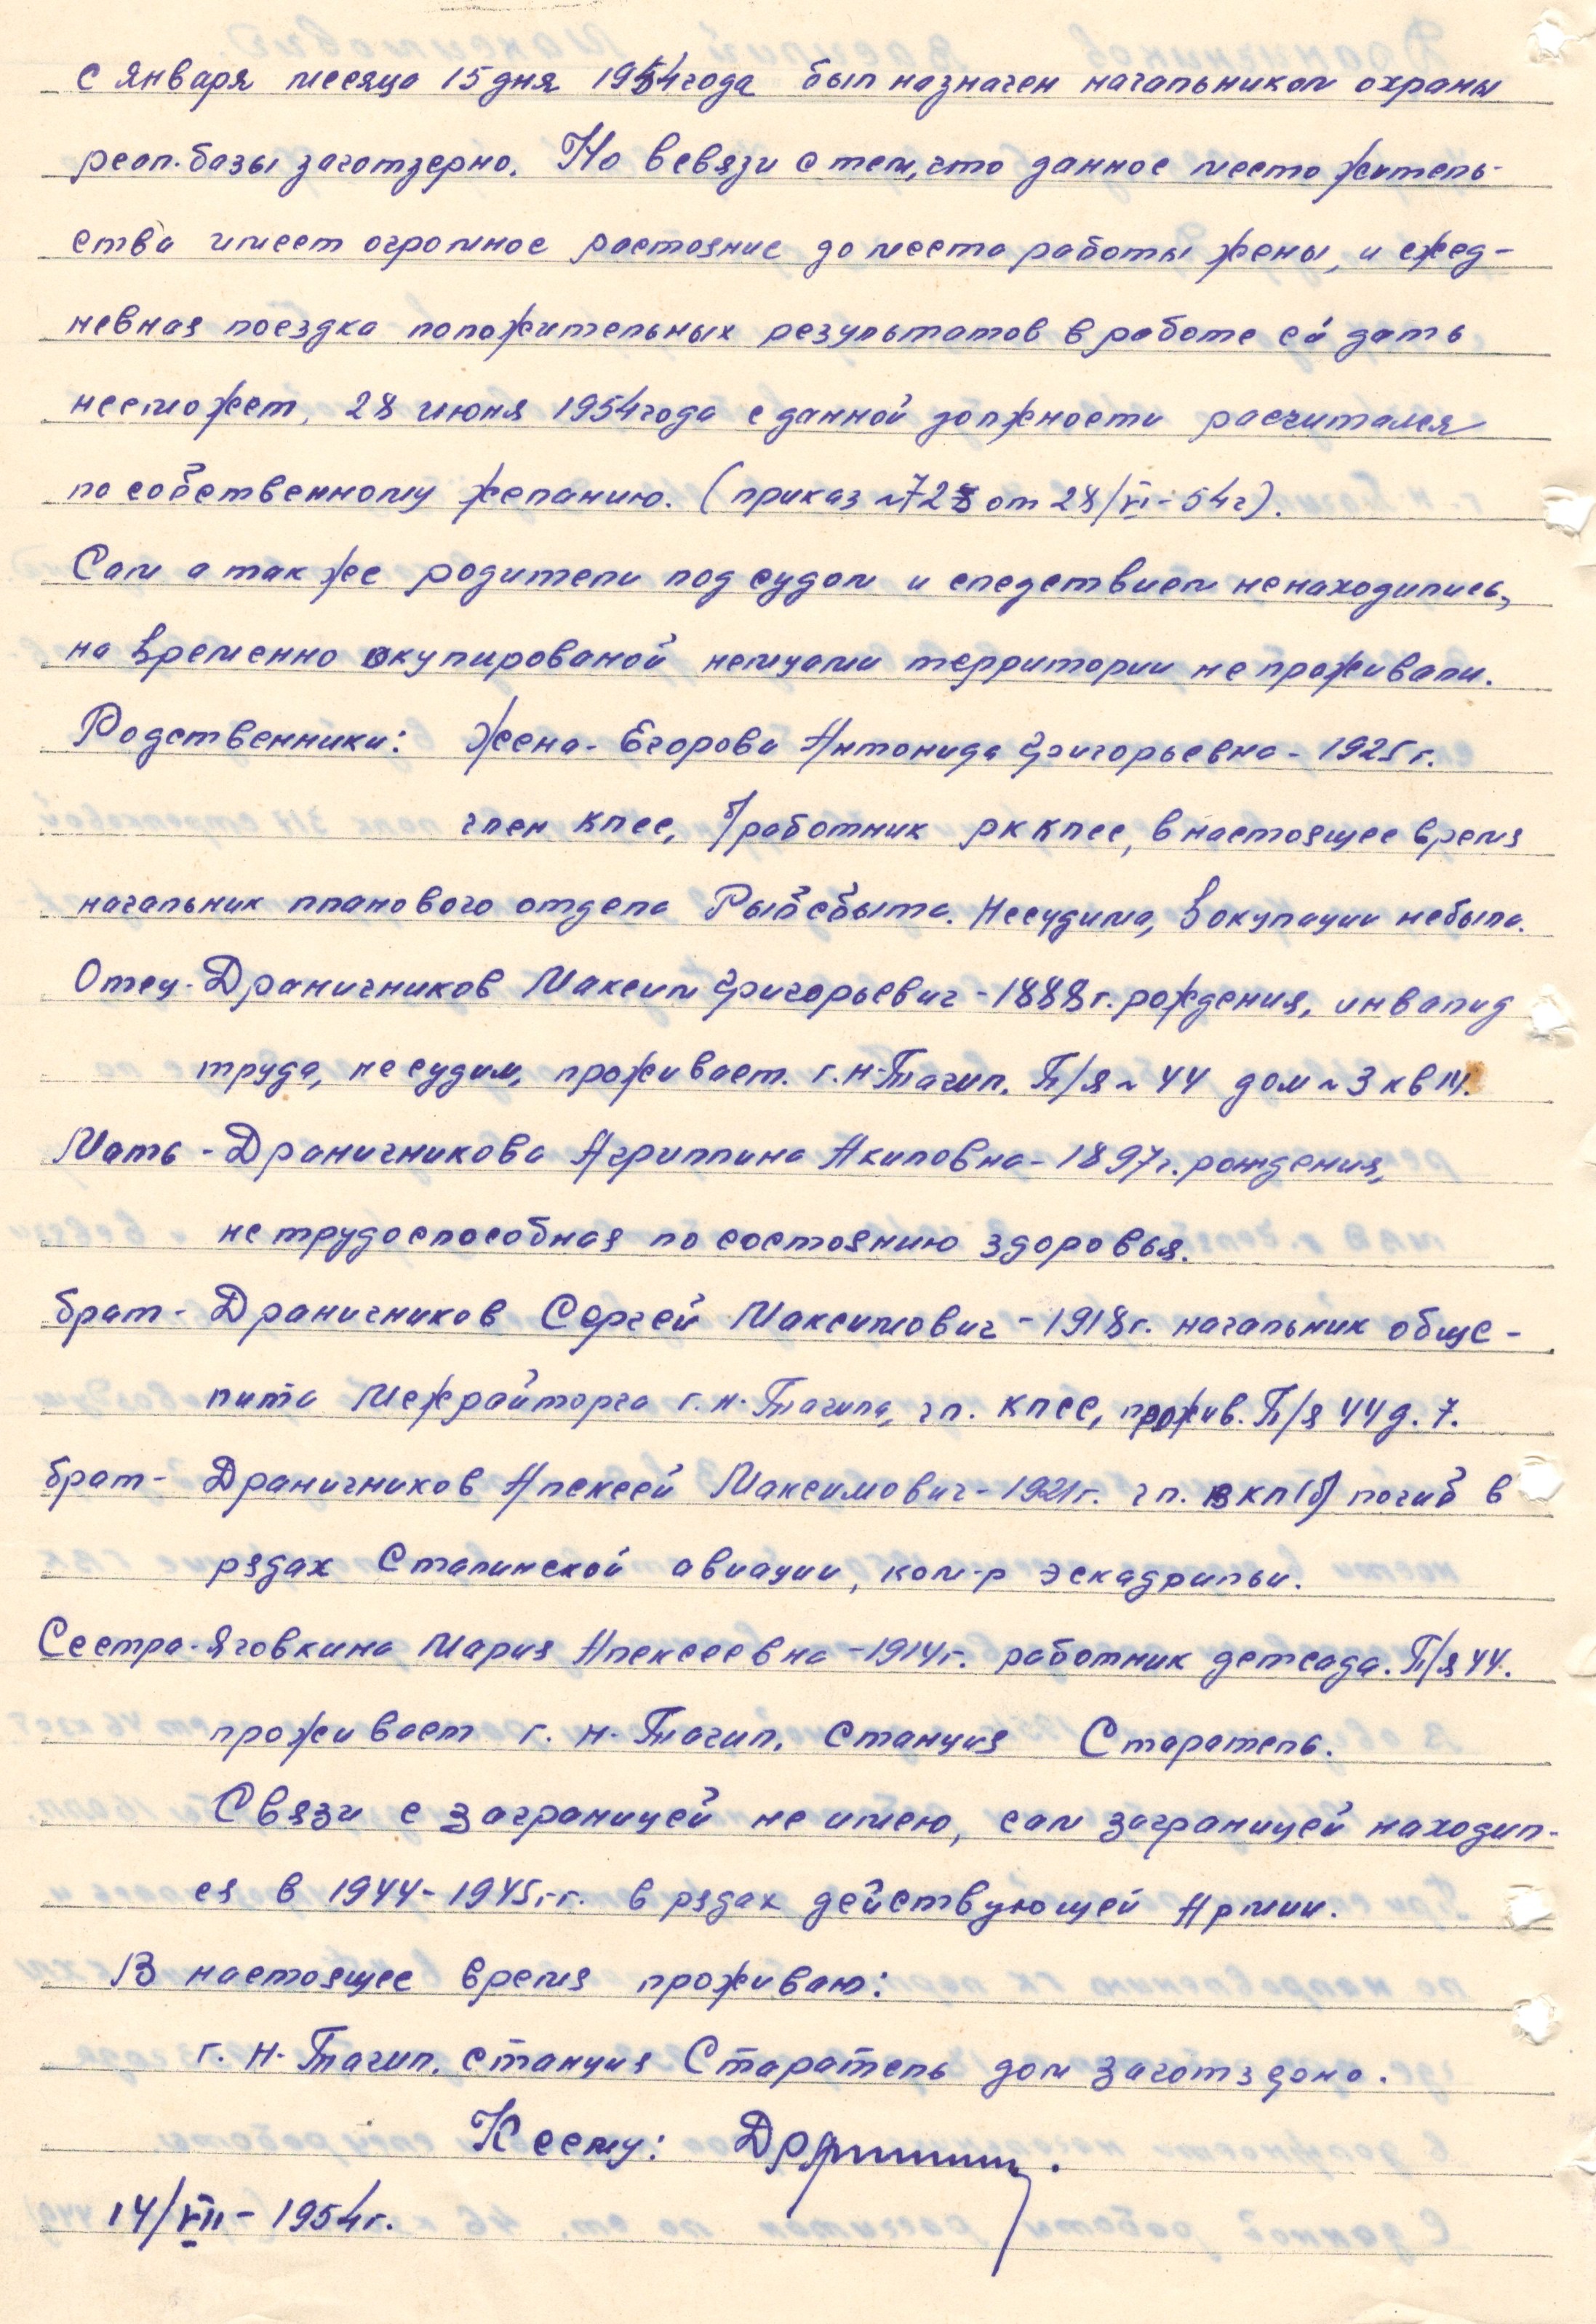 с Января месяца 15 дня 1954 года был назначен начальником охраны
реал.базы заготзерно. Но всвязи с тем, что данное место житель-
ства имеет огромное растояние до места работы жены, и ежед-
невная поездка положительных результатов в работе ей дать
несможет, 28 июня 1954 года с данной должности расчитался
по собственному желанию. (приказ № 728 от 28/VI-54 г).
Сам а так же родители под судом и следствием ненаходились,
на временно окупированой немцами территории не проживали.
Родственники: Жена - Егорова Антонида Григорьевна - 1925 г.
член КПСС, б/работник РК КПСС, в настоящее время
начальник планового отдела Рыбсбыта. Несудима, в окупации небыла.
Отец - Драничников Максим Григорьевич - 1888 г. рождения, инвалид
труда, не судим, проживает. г. Н-Тагил. П/я № 44 дом № 3 кв 14.
Мать - Драничникова Агриппина Акиловна - 1897 г. рождения,
не трудоспособная по состоянию здоровья.
брат - Драничников Сергей Максимович - 1918 г. начальник обще-
пита Межрайторга г. Н-Тагила, чл. КПСС, прожив. П/я 44 д. 7.
брат - Драничников Алексей Максимович - 1921 г. чл. ВКП(б) погиб в
рядах Сталинской авиации, ком-р эскадрильи.
Сестра - Яговкина Мария Алексеевна - 1914 г. работник детсада. П/я 44.
проживает г. Н-Тагил. Станция Старатель.
Связи с заграницей не имею, сам заграницей находил-
ся в 1944-1945 г-г. в рядах действующей Армии.
В настоящее время проживаю:
г. Н-Тагил. станция Старатель дом заготзерно.
К сему:
14/VII - 1954 г.